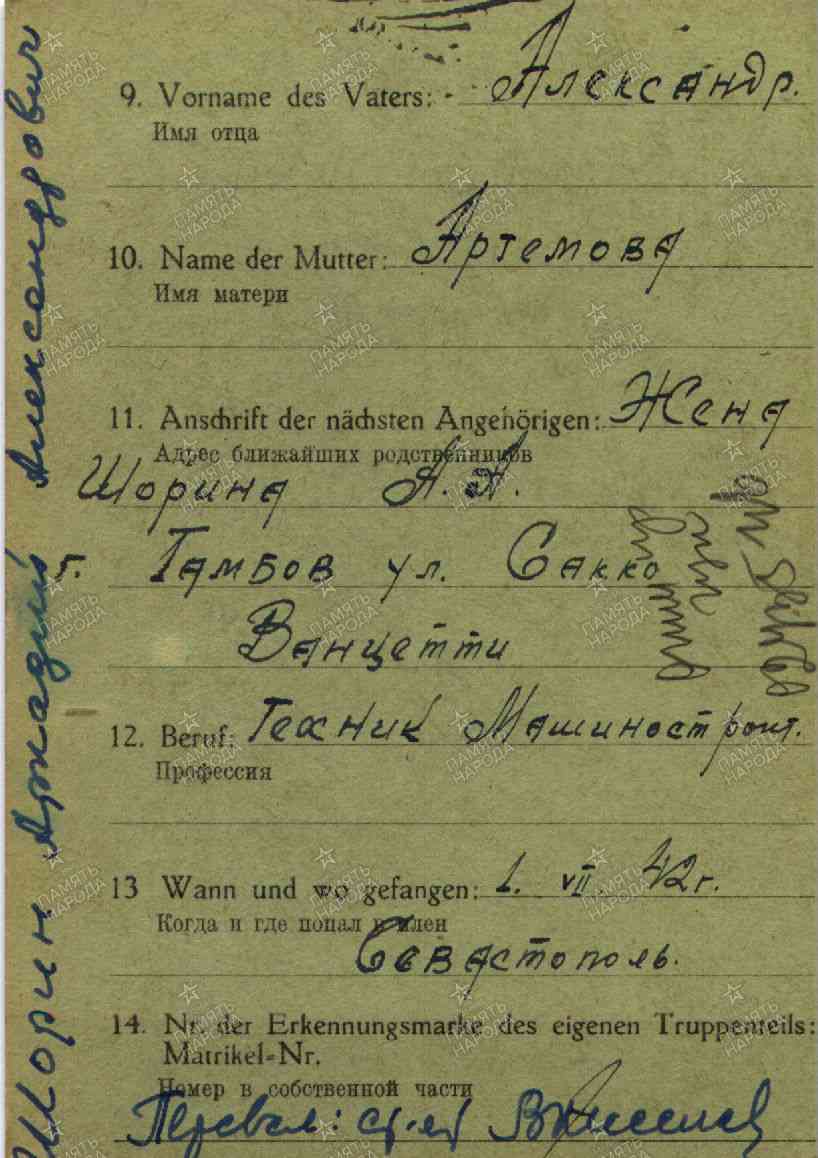 9. Vorname des Vaters: Александр.
Имя отца
10. Name der Mutter: Артемова
Имя матери
11. Anschrift der nächsten Angehörigen: Жена
Адрес ближайших родственников
Шорина А. А.
г. Тамбов ул. Сакко
Ванцетти
12. Beruf: Техник Машиностроит.
Профессия
13 Wann und wo gefangen: 1. VII. 42г.
Когда и где попал в плен
Севастополь.
14. Nr. der Erkennungsmarke des eigenen Truppenteils:
Matrikel-Nr.
Номер в собственной части
Перевел:
Шорин Аркадий Александрович
ПАМЯТЬ НАРОДА